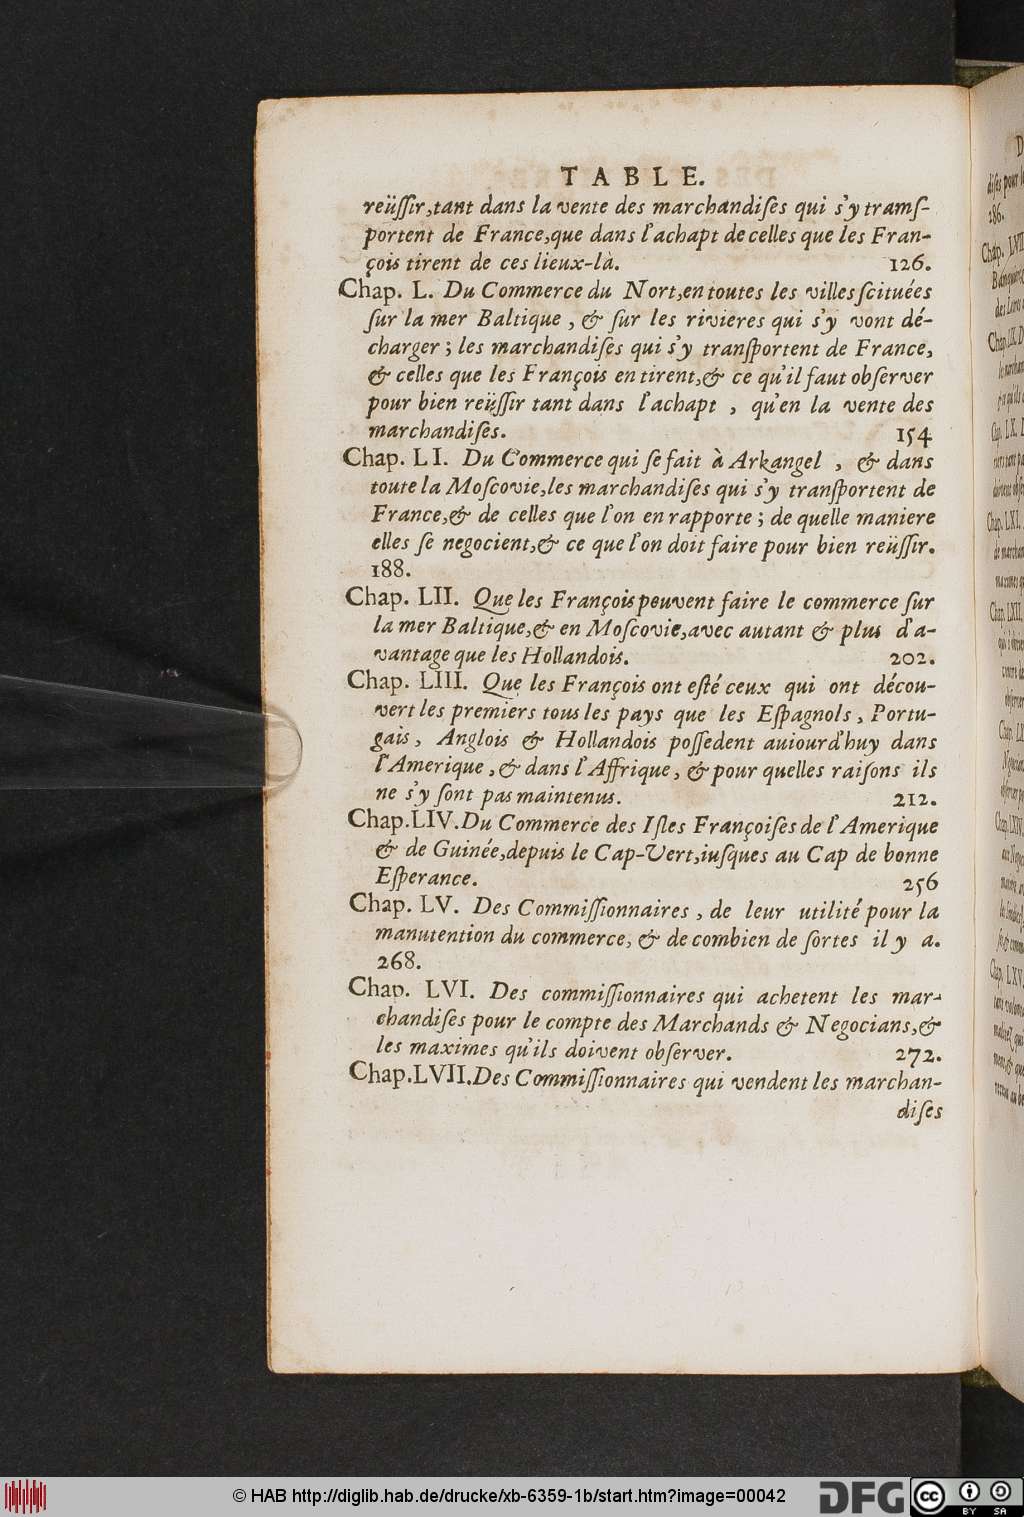 TABLE.
reüſſir,tant dans la vente des marchandiſes qui s'y tranſ-
portent de France,que dans l'achapt de celles que les Fran-
çois tirent de ces lieux-là. 126.
Chap. L. Du Commerce du Nort,en toutes les villes ſcituées
ſur la mer Baltique, & ſur les rivieres qui s'y vont dé-
charger; les marchandiſes qui s'y tranſportent de France,
& celles que les François en tirent,& ce qu'il faut obſerver
pour bien reüſſir tant dans l'achapt, qu'en la vente des
marchandiſes. 154
Chap. LI. Du Commerce qui ſe fait à Arkangel, & dans
toute la Moſcovie,les marchandiſes qui s'y tranſportent de
France,& de celles que l'on en rapporte; de quelle maniere
elles ſe negocient,& ce que l'on doit faire pour bien reüſſir.
188.
Chap. LII. Que les François peuvent faire le commerce ſur
la mer Baltique,& en Moſcovie,avec autant & plus d'a-
vantage que les Hollandois. 202.
Chap. LIII. Que les François ont eſté ceux qui ont décou-
vert les premiers tous les pays que les Eſpagnols, Portu-
gais, Anglois & Hollandois poſſedent auiourd'huy dans
l'Amerique, & dans l'Affrique, & pour quelles raiſons ils
ne s'y ſont pas maintenus. 212.
Chap.LIV.Du Commerce des Iſles Françoiſes de l'Amerique
& de Guinée,depuis le Cap-Vert,iuſques au Cap de bonne
Eſperance. 256
Chap. LV. Des Commiſſionnaires, de leur utilité pour la
manutention du commerce, & de combien de ſortes il y a.
268.
Chap. LVI. Des commiſſionnaires qui achetent les mar-
chandiſes pour le compte des Marchands & Negocians,&
les maximes qu'ils doivent obſerver. 272.
Chap.LVII.Des Commiſſionnaires qui vendent les marchan-
diſes
286.
Chap. LVII
Chap. LX.
Chap. LXI.
Chap. LXII.
© HAB http://diglib.hab.de/drucke/xb-6359-1b/start.htm?image=00042
DFG
cc
BY SA